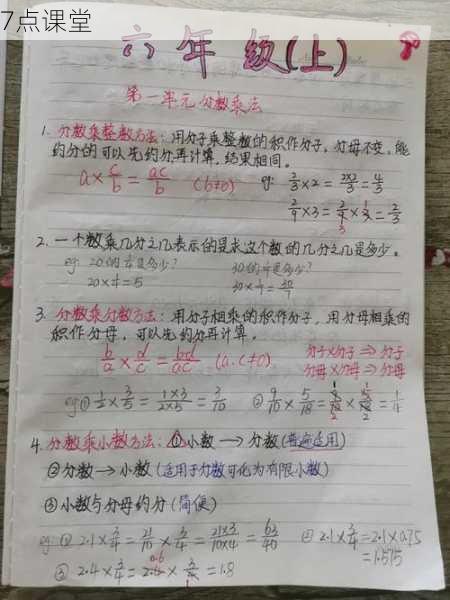 7点课堂
六年级(上)
第一单元分数乘法
1. 分数乘整数方法：用分子乘整数的积作分子，分母不变，能
约分的可以先约分再计算，结果相同。
a×c/b=ac/b (b≠0) eg: 2/3×2=2×2/3=4/3
2/9×3=2/9×3=2/3
2. 一个数乘几分之几表示的是求这个数的几分之几是多少。
eg: 20的1/4是多少? 30的是多少?
20×1/4=5
3. 分数乘分数方法：用分子相乘的积作分子，用分母相乘的
积作分母，可以先约分再计算。
b/a×d/c=bd/ac (a.c≠0) 分子×分子⇒分子
分母×分母⇒分母
eg①1/2×3/5=1×3/2×5=3/10 ②9/10×5/18= =1/4
4. 分数乘小数方法：①小数→分数(普遍适用)
②分数→小数(适用于分数可化为有限小数)
③小数与分母约分(简便)
eg: ①2.1×3/4=21/10×3/4=21×3/10×4=63/40 ②2.1×3/4=2.1×0.75
=1.575
③2.4×3/4=2.4×3/4=1.8